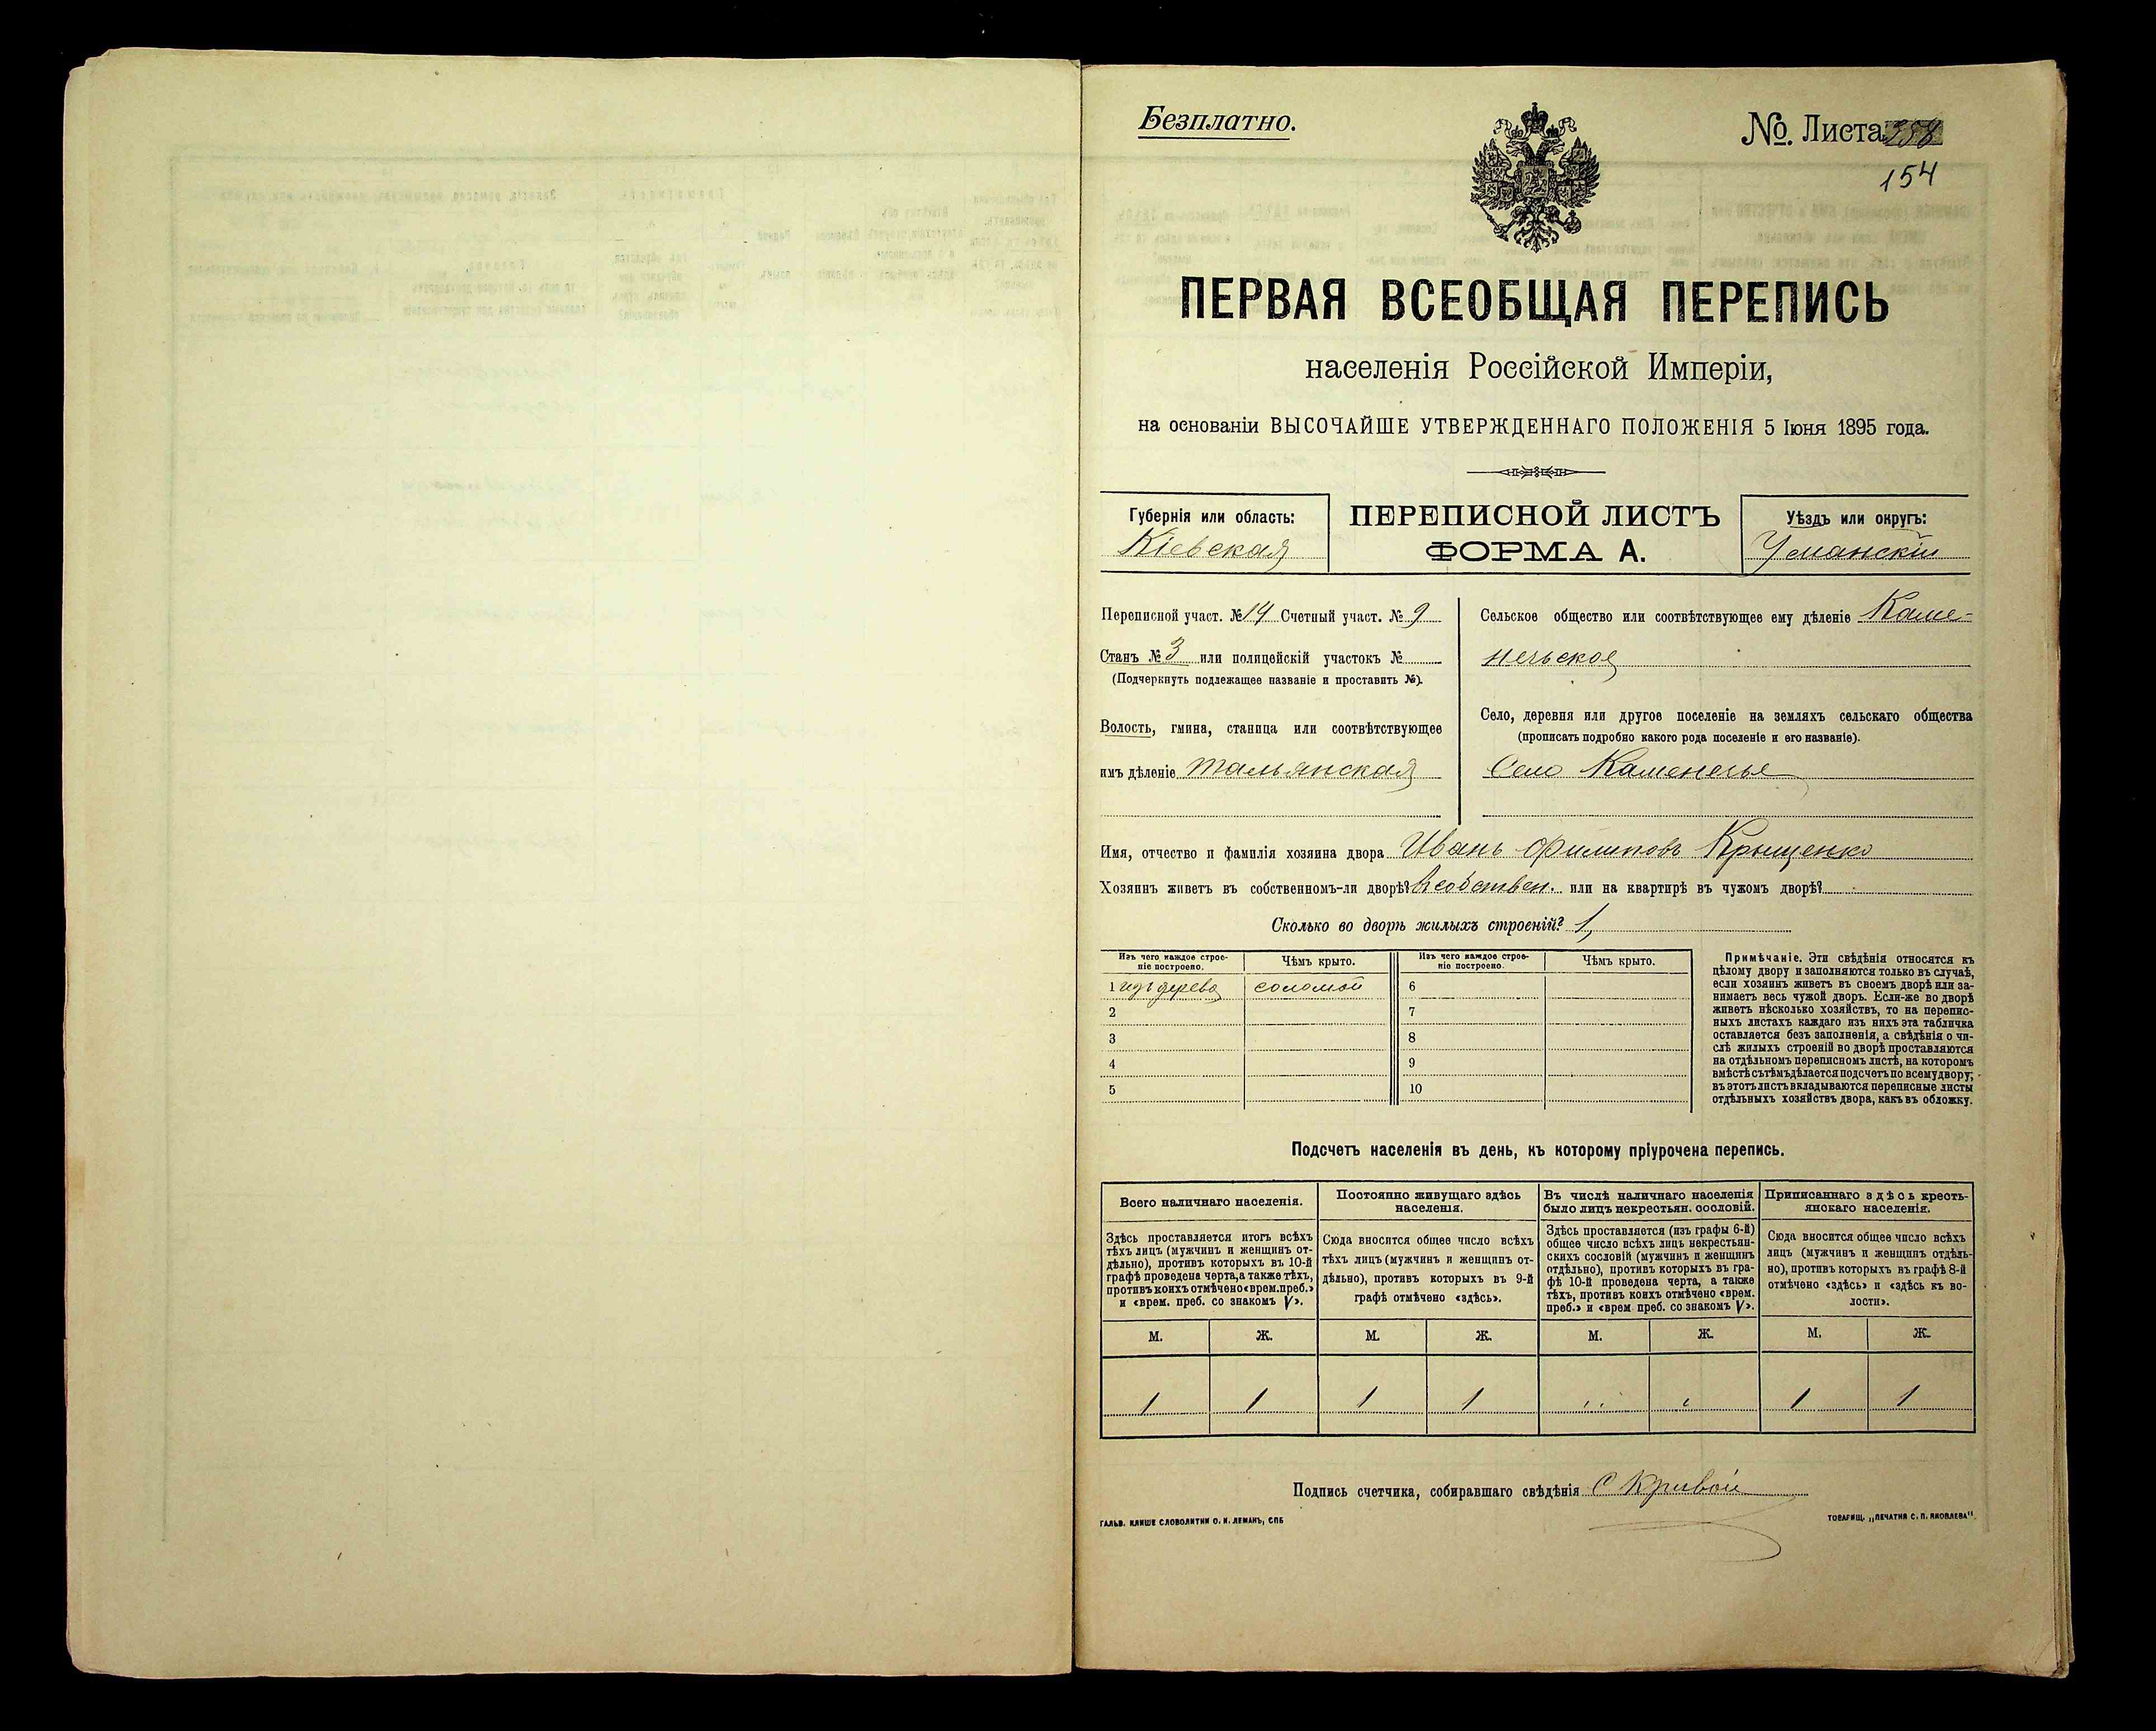 Безплатно.
№. Листа 258
154
ПЕРВАЯ ВСЕОБЩАЯ ПЕРЕПИСЬ
населенія Россійской Имперіи,
на основаніи ВЫСОЧАЙШЕ УТВЕРЖДЕННАГО ПОЛОЖЕНІЯ 5 Іюня 1895 года.
Губернія или область:
Кіевская
ПЕРЕПИСНОЙ ЛИСТЪ
ФОРМА А.
Уѣздъ или округъ:
Уманскій
Переписной участ. № 14 Счетный участ. № 9
Станъ № 3 или полицейскій участокъ №
(Подчеркнуть подлежащее названіе и проставить №).
Волость, гмина, станица или соотвѣтствующее
имъ дѣленіе Тальянская
Сельское общество или соотвѣтствующее ему дѣленіе Каме-
нечьское
Село, деревня или другое поселеніе на земляхъ сельскаго общества
(прописать подробно какого рода поселеніе и его названіе).
Село Каменечье
Имя, отчество и фамилія хозяина двора Иванъ Филиповъ Крыщенко
Хозяинъ живетъ въ собственномъ-ли дворѣ? В собствен. или на квартирѣ въ чужомъ дворѣ?
Сколько во дворѣ жилыхъ строеній? 1,
Изъ чего каждое строе-
ніе построено.
Чѣмъ крыто.
Изъ чего каждое строе-
ніе построено.
Чѣмъ крыто.
1 изъ дерева соломой 6
2 7
3 8
4 9
5 10
Примѣчаніе. Эти свѣдѣнія относятся къ
цѣлому двору и заполняются только въ случаѣ,
если хозяинъ живетъ въ своемъ дворѣ или за-
нимаетъ весь чужой дворъ. Если-же во дворѣ
живетъ нѣсколько хозяйствъ, то на перепис-
ныхъ листахъ каждаго изъ нихъ эта табличка
оставляется безъ заполненія, а свѣдѣнія о чи-
слѣ жилыхъ строеній во дворѣ проставляются
на отдѣльномъ переписномъ листѣ, на которомъ
вмѣстѣ съ тѣмъ дѣлается подсчетъ по всему двору;
въ этотъ листъ вкладываются переписные листы
отдѣльныхъ хозяйствъ двора, какъ въ обложку.
Подсчетъ населенія въ день, къ которому пріурочена перепись.
Всего наличнаго населенія.
Здѣсь проставляется итогъ всѣхъ
тѣхъ лицъ (мужчинъ и женщинъ от-
дѣльно), противъ которыхъ въ 10-й
графѣ проведена черта, а также тѣхъ,
противъ коихъ отмѣчено «врем. преб.»
и «врем. преб. со знакомъ V».
Постоянно живущаго здѣсь
населенія.
Сюда вносится общее число всѣхъ
тѣхъ лицъ (мужчинъ и женщинъ от-
дѣльно), противъ которыхъ въ 9-й
графѣ отмѣчено «здѣсь».
Въ числѣ наличнаго населенія
было лицъ некрестьян. сословій.
Здѣсь проставляется (изъ графы 6-й)
общее число всѣхъ лицъ некрестьян-
скихъ сословій (мужчинъ и женщинъ
отдѣльно), противъ которыхъ въ гра-
фѣ 10-й проведена черта, а также
тѣхъ, противъ коихъ отмѣчено «врем.
преб.» и «врем преб. со знакомъ V».
Приписаннаго здѣсь кресть-
янскаго населенія.
Сюда вносится общее число всѣхъ
лицъ (мужчинъ и женщинъ отдѣль-
но), противъ которыхъ въ графѣ 8-й
отмѣчено «здѣсь» и «здѣсь къ во-
лости».
М. Ж. М. Ж. М. Ж. М. Ж.
1 1 1 1 1 1
Подпись счетчика, собиравшаго свѣдѣнія С Кривой
ГАЛЬВ. КЛИШЕ СЛОВОЛИТНИ О. И. ЛЕМАНЪ, СПБ
ТОВАРИЩ. „ПЕЧАТНЯ С. П. ЯКОВЛЕВА".